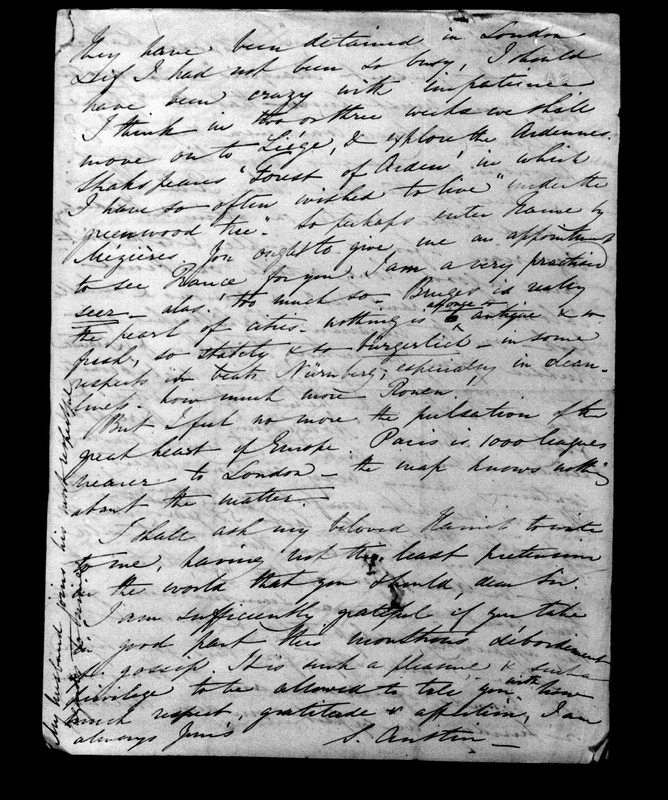 They have been detained in London
& if I had not been so busy, I should
have been crazy with impatience
I think in two or three weeks we shall
move on to Liége, & explore the Ardennes
Shakspeare's 'Forest of Arden' in which
I have so often wished to live "under the
greenwood tree". So perhaps enter France by
Mézières. You ought to give me an appointment
to see France for you. I am a very practised
seer - alas! too much so - Bruges is really
the pearl of cities - nothing is so antique & so
fresh, so stately & so bürgerlich - in some
respects it beats Nürnberg, especially in clean-
liness. how much more Rouen!
But I feel no more the pulsation of the
great heart of Europe. Paris is 1000 leagues
nearer to London - the map knows nothg
about the matter.
I shall ask my beloved to write
to me, having not the least pretension
in the world that you should, dear Sir.
I am sufficiently grateful if you take
in good part this monstrous débordement
of gossip. It is such a pleasure & such a
privilege to be allowed to tell you with how
much respect, gratitude & affection, I am
always yours S. Austin
My husband joins his most respectful